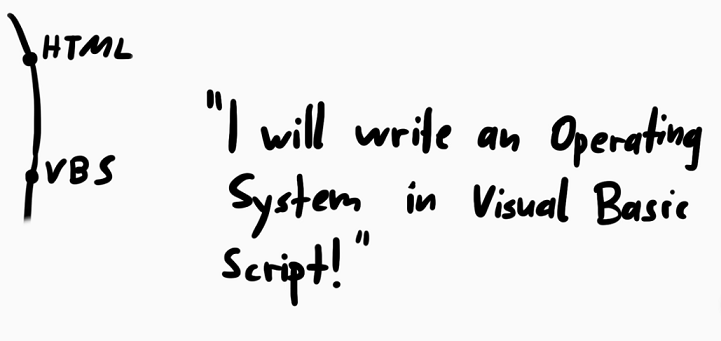 HTML
VBS
"I will write an Operating
System in Visual Basic
Script!"